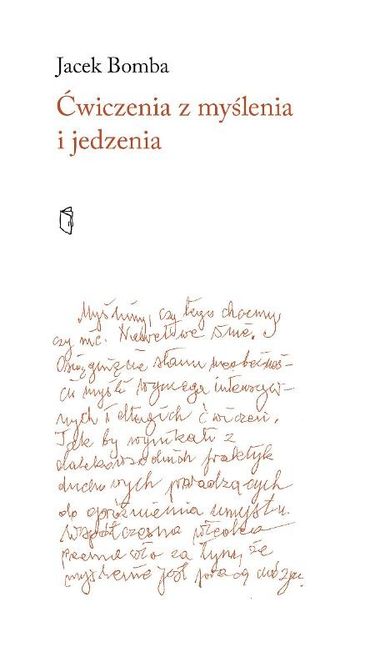 Jacek Bomba
Ćwiczenia z myślenia
i jedzenia
Myślimy, czy tego chcemy
czy nie. Nawet we śnie.
Osiągnięcie stanu nieobecnoś-
ci myśli wymaga intensyw-
nych i długich ćwiczeń.
Tak by wynikało z
dalekowschodnich praktyk
duchowych prowadzących
do opróżnienia umysłu.
Współczesna wiedza
przemawia za tym, że
myślenie jest